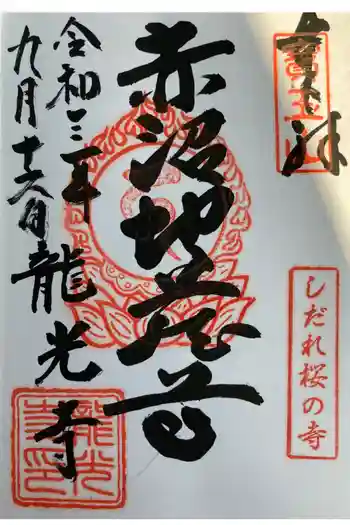 奉拝
赤沼地蔵尊
令和三年
九月十六日
龍光寺
しだれ桜の寺
龍光寺印